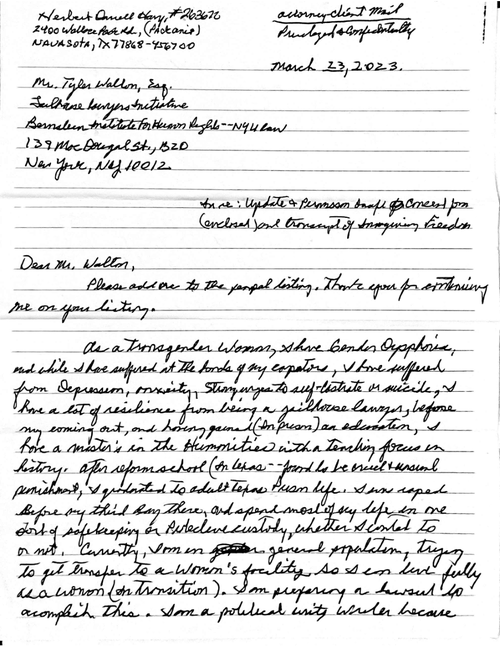 Herbert #263672
2400 Wallace Pack Rd., (Pack unit)
NAVASOTA, TX 77868-4567 00
attorney-client Mail
Privileged & Confidentially
March 23, 2023.
Mr. Tyler Walton, Esq.
Jailhouse Lawyers Initiative
Bernstein Institute For Human Rights--NYU Law
139 MacDougal St.,
New York, NY 10012
In re: Update & Permission
(enclosed) and transcript of Imagining Freedom
Dear Mr. Walton,
Please add me to the penpal listing. Thank you for continuing
me on your listing.
As a transgender Woman, I have Gender Dysphoria,
and while I have suffered at the hands of my captors, I have suffered
from Depression, anxiety, Strong urges to self-castrate or suicide, I
have a lot of resilience from being a jailhouse lawyer, before
my coming out, and having gained (In prison) an education, I
have a master's in the Humanities with a teaching focus in
history. After reform school (In Texas -- found to be cruel & unusual
punishment), I graduated to adult Texas Prison life. I was raped
Before my third day there, and spend most of my life in one
sort of safekeeping or Protective custody, whether I wanted to
or not. Currently, I am in general population, trying
to get transfer to a Women's facility so I can live fully
as a woman (In transition). I am preparing a lawsuit to
acomplish this. I am a political writer because